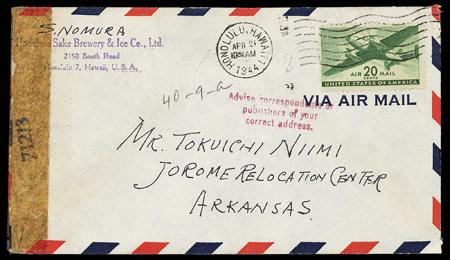 S. NOMURA
Honolulu Sake Brewery & Ice Co., Ltd.
2150 Booth Road
Honolulu 7, Hawaii, U.S.A.
HONOLULU, HAWAII
APR 21
10:30 AM
1944
AIR 20 MAIL
CENTS
UNITED STATES OF AMERICA
VIA AIR MAIL
40-9-a
Advise correspondents or
publishers of your
correct address.
71213
MR. TOKUICHI NIIMI
JOROME RELOCATION CENTER
ARKANSAS.